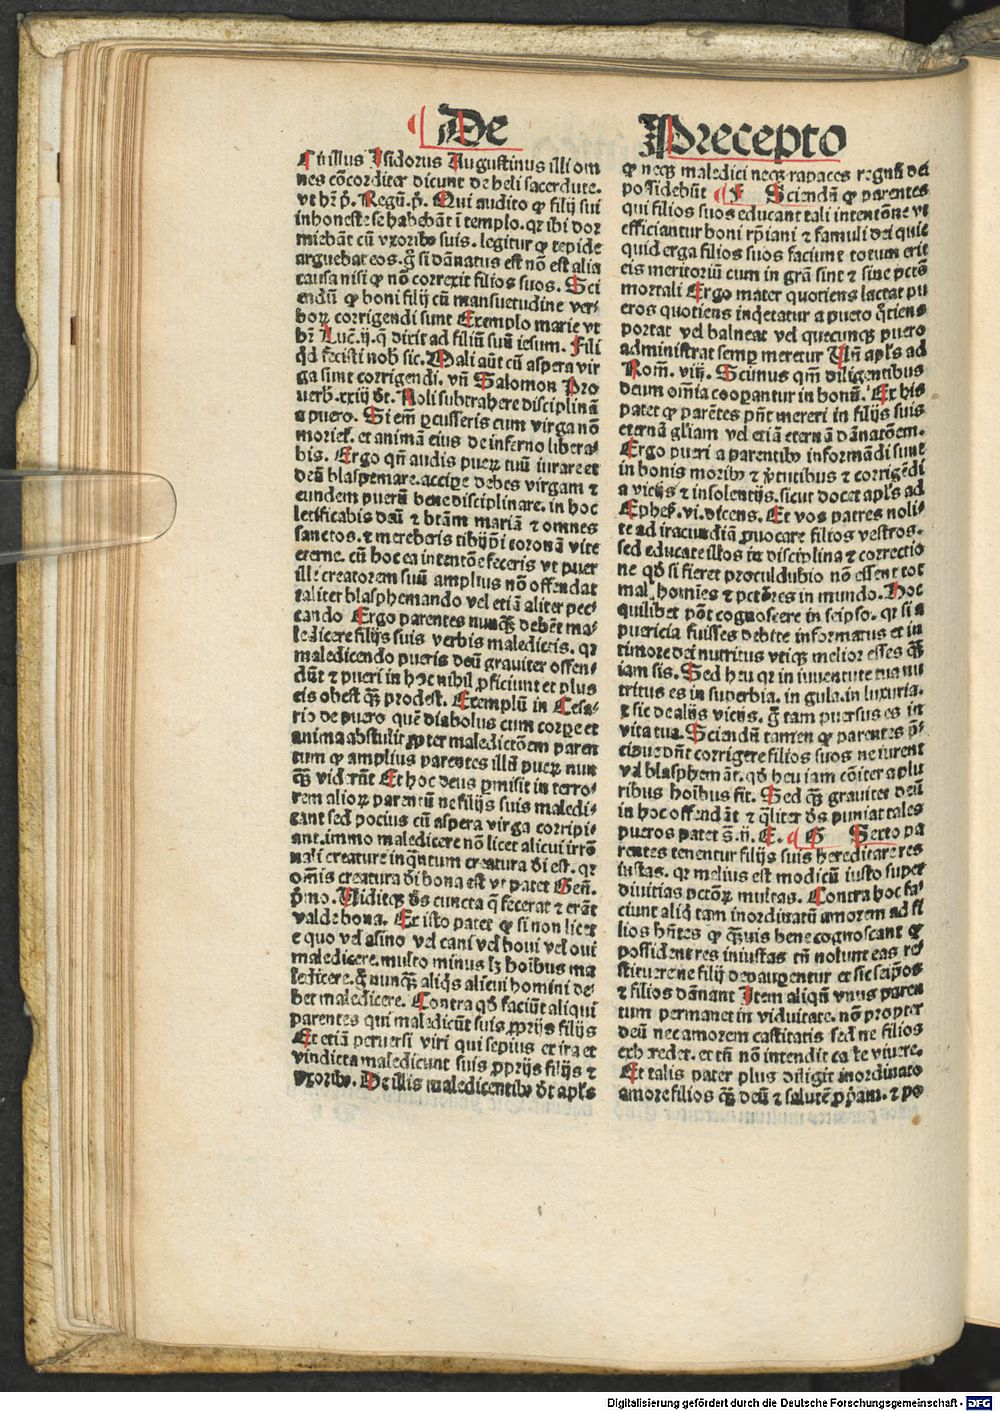 De
Precepto
Cirillus Isidorus Augustinus illi om
nes cōcorditer dicunt de heli sacerdote.
vt hr̄ p̄. Regū.p̄. Qui audito ꝙ filij sui
inhoneste se habebāt ī templo. qꝛ ibi dor
miebāt cū vxoribꝰ suis. legitur ꝙ tepide
arguebat eos. g̊ si dānatus est nō est alia
causa nisi ꝙ nō correxit filios suos. Sci
endū ꝙ boni filij cū mansuetudine ver⸗
boꝝ corrigendi sunt Exemplo marie vt
hr̄ Luc̄.ij. q̄ dicit ad filiū suū iesum. Fili
qd̓ fecisti nob̓ sic. Mali aūt cū aspera vir
ga sunt corrigendi. vn̄ Salomon Pro
uerb̓.xxiij dt̄. Noli subtrahere disciplinā
a puero. Si em̄ ꝑcusseris eum virga nō
morieꝉ. et animā eius de inferno libera⸗
bis. Ergo qn̄ audis pueꝝ tuū iurare et
deū blasphemare. accipe debes virgam ⁊
eundem puerū bene disciplinare. in hoc
letificabis deū ⁊ btām mariā ⁊ omnes
sanctos. ⁊ mereberis tibijp̄i coronā vite
eterne. cū hoc ea intentōe feceris vt puer
ille creatorem suū amplius nō offendat
taliter blasphemando vel etiā aliter pec⸗
cando Ergo parentes nunqꝫ debēt ma⸗
ledicere filijs suis verbis maledictis. qꝛ
maledicendo pueris deū grauiter offen⸗
dūt ⁊ pueri in hoc nihil ꝓficiunt et plus
eis obest qꝫ prodest. Exemplū in Cesa⸗
rio de puero quē diabolus cum corpe et
anima abstulit ꝓpter maledictōem paren
tum ꝙ amplius parentes illū pueꝝ nun
qꝫ viderūt Et hoc deus ꝑmisit in terro⸗
rem alioꝝ parentū ne filijs suis maledi⸗
cant sed pocius cū aspera virga corripi⸗
ant. immo maledicere nō licet alicui irrō
nali creature inqꝫntum creatura di est. qꝛ
om̄is creatura di bona est vt patet Gen̄.
p̄mo. Viditqꝫ ds̄ cuncta q̄ fecerat ⁊ erāt
valde bona. Ex isto patet ꝙ si non licet
e quo vel asino vel cani vel boui vel oui
maledicere. multo minus lꝫ hoībus ma
ledicere. g̊ nunqꝫ aliqs̓ alicui homini de⸗
bet maledicere. Contra qd̓ faciūt aliqui
parentes qui maledicūt suis ꝓprijs filijs
Et etiā peruersi viri qui sepius ex ira et
vindicta maledicunt suis ꝓprijs filijs ⁊
vxoribꝰ. De illis maledicentibꝰ dt̄ apl̄s
ꝙ neqꝫ maledici neqꝫ rapaces regnū dei
possidebūt ¶ F Sciendū ꝙ parentes
qui filios suos educant tali intentōne vt
efficiantur boni xp̄iani ⁊ famuli dei quic
quid erga filios suos faciunt totum erit
eis meritoriū cum in grā sint ⁊ sine pctō
mortali Ergo mater quotiens lactat pu
eros quotiens inq̓etatur a puero q̓tiens
portat vel balneat vel quecunqꝫ puero
administrat semꝑ meretur Vn̄ apl̄s ad
Rom̄. viij. Scimus qm̄ diligentibus
deum om̄ia cooꝑantur in bonū. Ex his
patet ꝙ parētes pn̄t mereri in filijs suis
eternā gl̄iam vel etiā eternā dānatōem.
Ergo pueri a parentibꝰ informādi sunt
in bonis moribꝰ ⁊ v̓tutibus ⁊ corrigēdi
a vicijs ⁊ insolentijs. sicut docet apl̄s ad
Ephes̄.vi. dicens. Et vos patres noli⸗
te ad iracundiā ꝓuocare filios vestros.
sed educate illos in disciplina ⁊ correctio
ne qd̓ si fieret procul dubio nō essent tot
mali homīes ⁊ pctōres in mundo. Hoc
quilibet pōt cognoscere in seipso. qꝛ si a
puericia fuisses debite informatus et in
timore dei nutritus vtiqꝫ melior esses qꝫ
iam sis. Sed heu qꝛ in iuuentute tua nu
tritus es in superbia. in gula. in luxuria.
⁊ sic de alijs vicijs. g̊ tam ꝑuersus es in
vita tua. Sciendū tamen ꝙ parentes p̄⸗
cipue dn̄t corrigere filios suos ne iurent
vel blasphemāt. qd̓ heu iam cōiter a plu
ribus hoībus fit. Sed qꝫ grauiter deū
in hoc offendāt ⁊ q̄liter ds̄ puniat tales
pueros patet s̄.ij. E. ¶ G Sexto pa
rentes tenentur filijs suis hereditare res
iustas. qꝛ melius est modicū iusto super
diuitias pctōꝝ multas. Contra hoc fa⸗
ciunt aliq̓ tam inordinatū amorem ad fi
lios hn̄tes ꝙ qꝫuis bene cognoscant ꝙ
possident res iniustas tn̄ nolunt eas re⸗
stituere ne filij depauꝑentur et sic seip̄os
⁊ filios dānant Item aliqn̄ vnus paren
tum permanet in viduitate. nō propter
deū nec amorem castitatis sed ne filios
exheredet. et tn̄ nō intendit caste viuere.
Et talis pater plus diligit inordinato
amore filios qꝫ deū ⁊ salutē ꝓpriam. ⁊ po
Digitalisierung gefördert durch die Deutsche Forschungsgemeinschaft - DFG